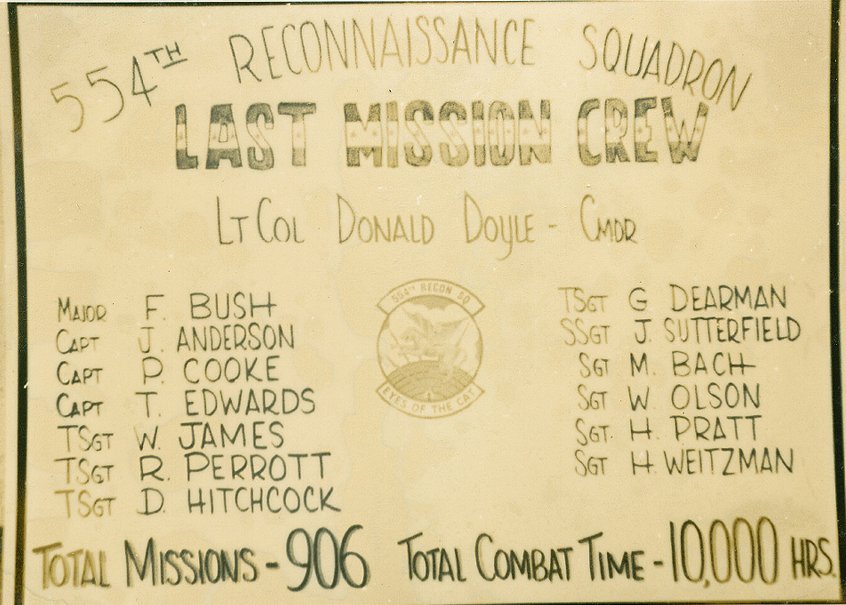 554TH RECONNAISSANCE SQUADRON
LAST MISSION CREW
LT COL DONALD DOYLE - CMDR
MAJOR F. BUSH
CAPT J. ANDERSON
CAPT P. COOKE
CAPT T. EDWARDS
TSGT W. JAMES
TSGT R. PERROTT
TSGT D. HITCHCOCK
554TH RECON SQ
EYES OF THE CAT
TSGT G DEARMAN
SSGT J. SUTTERFIELD
SGT M. BACH
SGT W. OLSON
SGT. H. PRATT
SGT H. WEITZMAN
TOTAL MISSIONS - 906 TOTAL COMBAT TIME - 10,000 HRS.